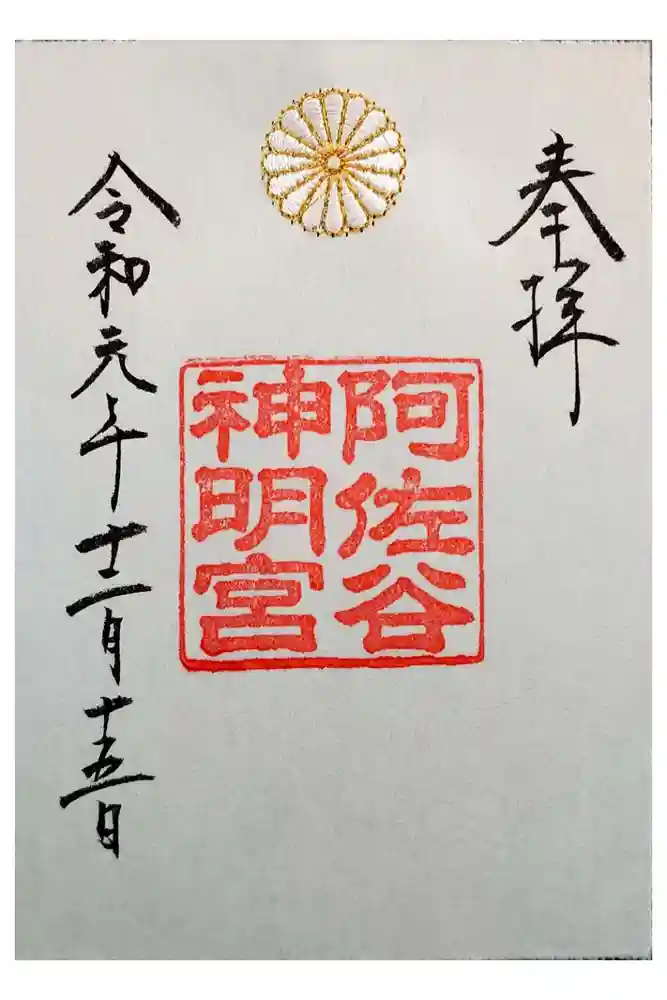 奉拝
阿佐谷
神明宮
令和元年十二月十五日